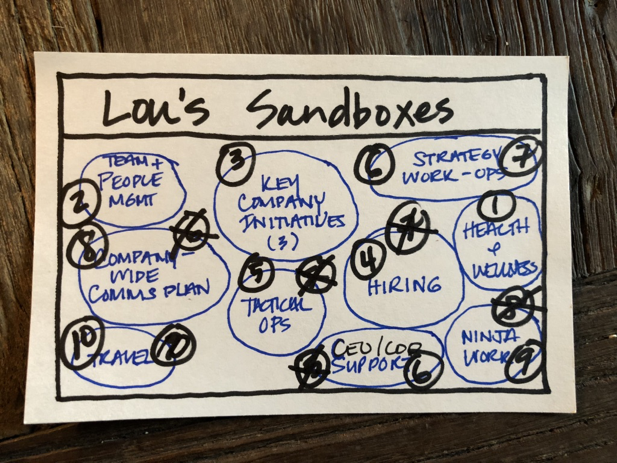 Lou's Sandboxes
TEAM +
PEOPLE
MGMT
2
3
KEY
COMPANY
INITIATIVES
(3)
6
STRATEGY
WORK-OPS
7
1
HEALTH
&
WELLNESS
8
COMPANY-
WIDE
COMMS PLAN
5
TACTICAL
OPS
4
HIRING
10
TRAVEL
CEO/COO
SUPPORT
6
NINJA
WORK
9